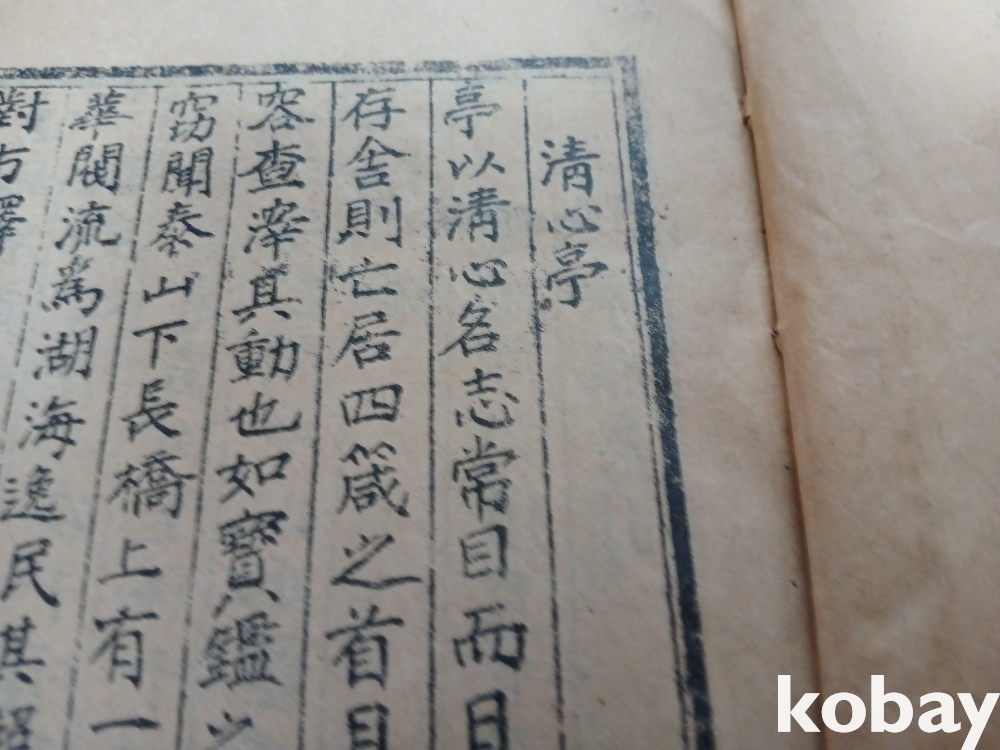 清心亭
亭以清心名志常目而目
存舍則亡居四箴之首目
容查滓其動也如寶鑑之
窃聞泰山下長橋上有一
華閥流為湖海逸民其
對方
kobay